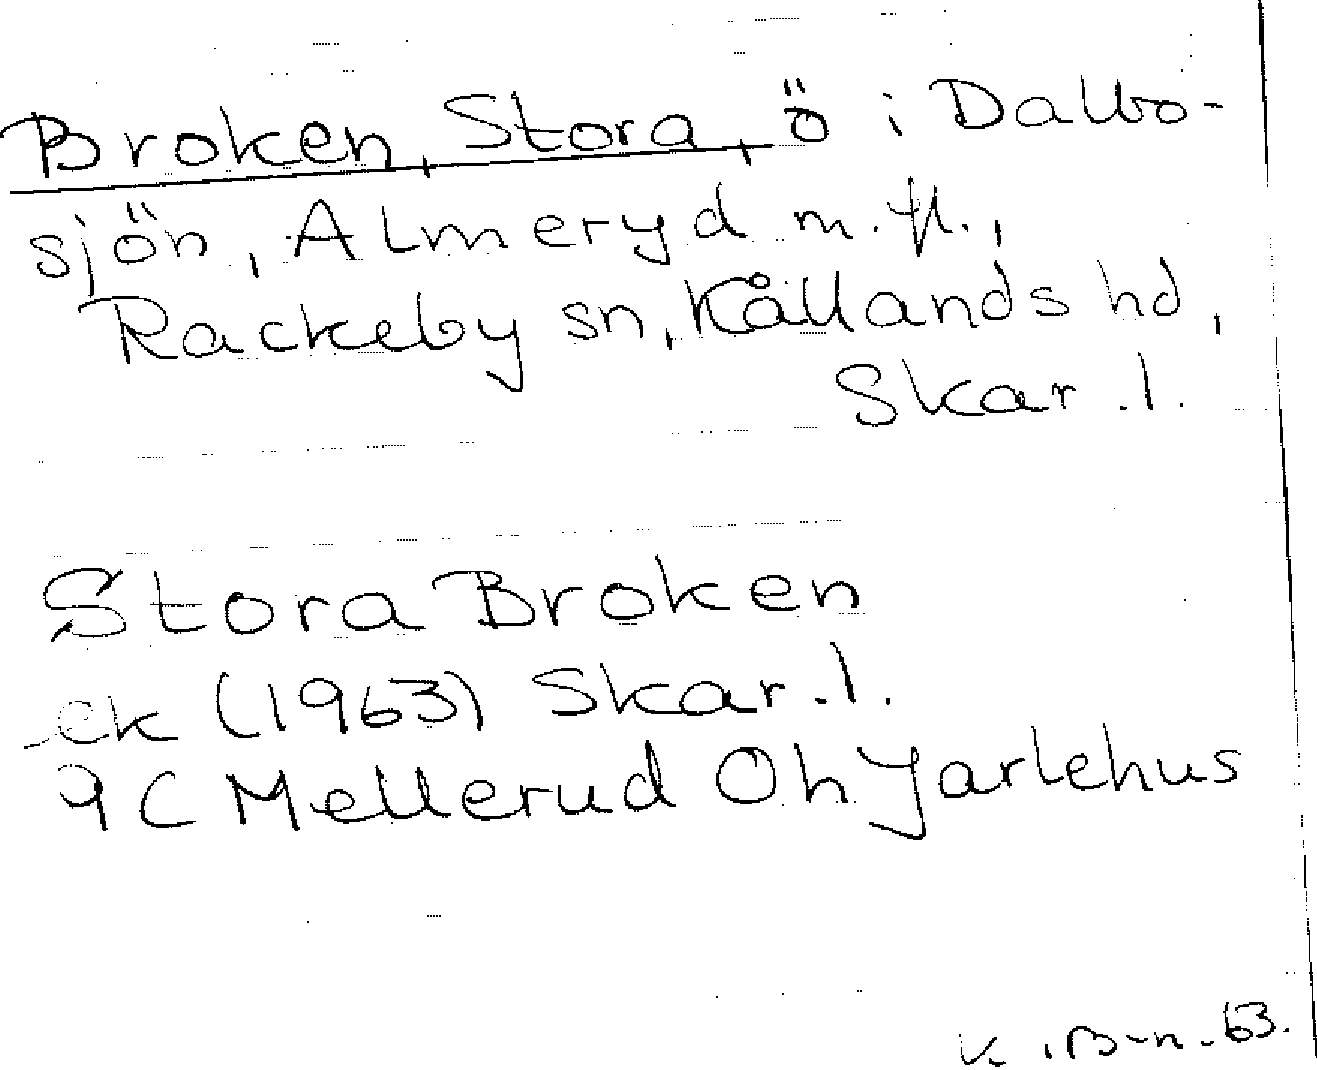 Broken, Stora, ö i Dalbo-
sjön, Almeryd m. fl.,
Rackeby sn, Kållands hd,
Skar. l.
Stora Broken
ek (1963) Skar. l.
9C Mellerud Oh Jarlehus
K. B-n. 63.